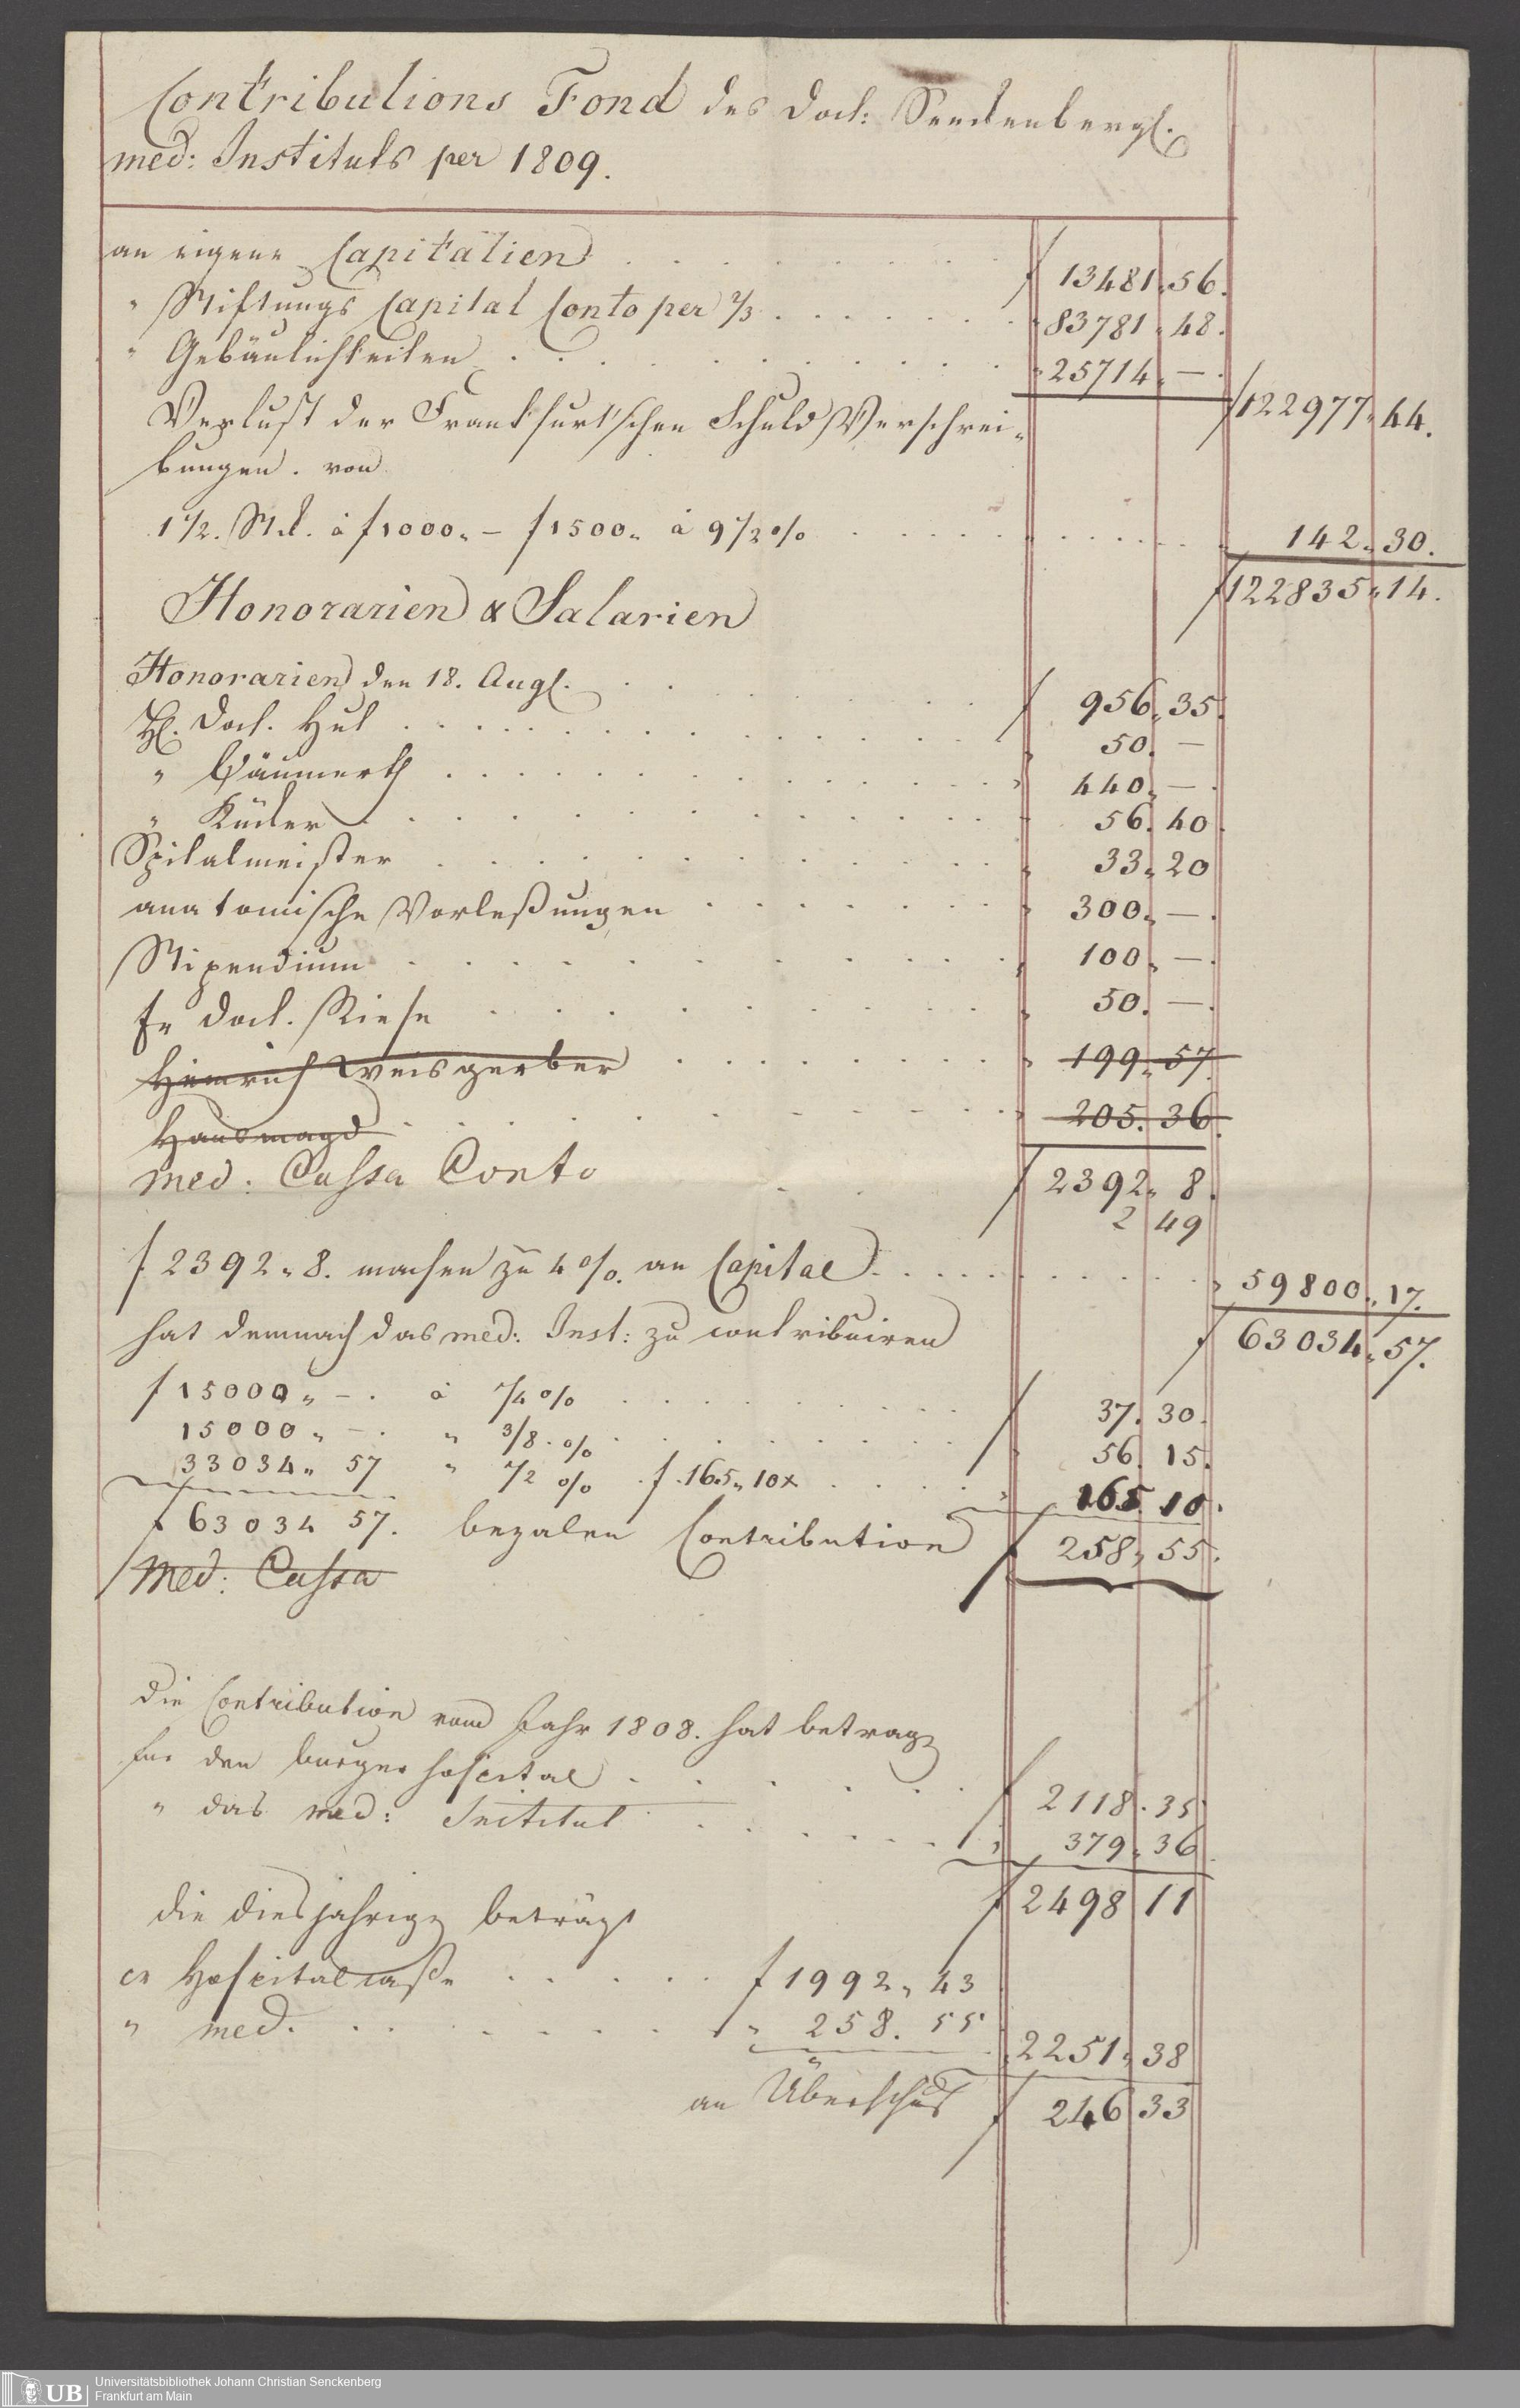 Contributions Fond des Doct: Senckenbergl.
med: Instituts per 1809.
an eigene Capitalien . . . . f 13481 „ 56.
„ Stiftungs Capital Conto per 2/3 . . . . „ 83781 „ 48.
„ Gebäulichkeiten . . . . „ 25714 „ — .
f 122977 „ 44.
Verlust der Frankfurtschen Schuld Verschrei-
bungen . von
1 1/2. Stck. à f 1000 „ — f 1500 „ à 9 1/2 % . . . . 142 „ 30.
f 122835 „ 14.
Honorarien & Salarien
Honorarien den 18. Augl. . . . . f 956 „ 35.
H. Doct. Hut . . . . „ 50. —
„ Bäumerth . . . . „ 440 „ — .
„ Küchler . . . . „ 56. 40.
Spitalmeister . . . . „ 33 „ 20
anatomische Vorleßungen . . . . „ 300 „ — .
Stipendium . . . . „ 100 „ — .
Fr Doct. Riese . . . . „ 50. — .
Heinrich Weisgerber . . . . „ 199 „ 57.
Hausmagd . . . . „ 205. 36.
med: Cassa Conto f 2392 „ 8.
2 49
f 2392 „ 8. machen zu 4 %. an Capital . . . . „ 59800 „ 17.
hat demnach das med: Inst: zu contribuiren f 63034 „ 57.
f 15000 „ — . à 1/4 % . . . . f 37. 30.
15000 „ — . „ 3/8 . % . . . . „ 56. 15.
33034 „ 57 „ 1/2 % . f. 165 „ 10x . . . . „ 165. 10.
f 63034 57. bezalen Contribution f 258 „ 55.
Med: Cassa
die Contribution vom Jahr 1808. hat betragen
für den burger hospital . . . . f 2118. 35
„ das med: Institut . . . . „ 379 „ 36
f 2498 11
die diesjahrige beträgt
er Hospitalcaße . . . . f 1992 „ 43
„ med. . . . . „ 258. 55 2251 „ 38
an Überschuß f 246 33
UB
Universitätsbibliothek Johann Christian Senckenberg
Frankfurt am Main